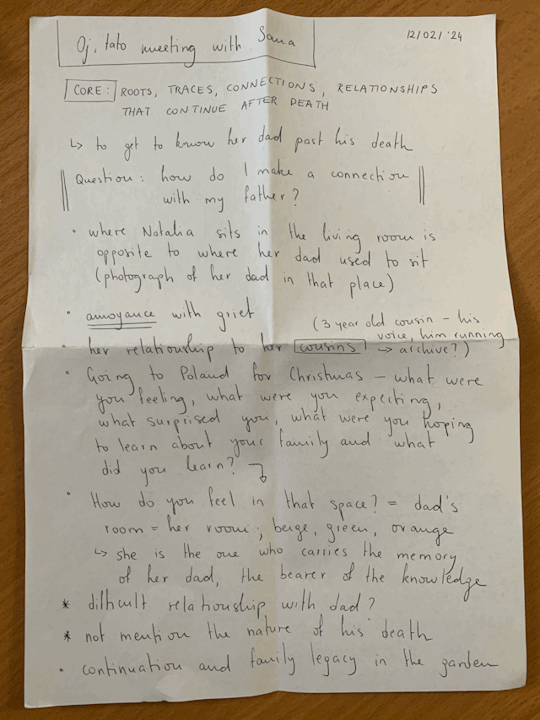 Oj, tato meeting with Sana
12/02/'24
CORE: ROOTS, TRACES, CONNECTIONS, RELATIONSHIPS
THAT CONTINUE AFTER DEATH
↳ to get to know her dad past his death
Question: how do I make a connection
with my father?
• where Natalia sits in the living room is
opposite to where her dad used to sit
(photograph of her dad in that place)
• annoyance with grief
(3 year old cousin - his
voice, him running
• her relationship to her cousins → archive?)
• Going to Poland for Christmas - what were
you feeling, what were you expecting,
what surprised you, what were you hoping
to learn about your family and what
did you learn?
• How do you feel in that space? = dad's
room = her room; beige, green, orange
↳ she is the one who carries the memory
of her dad, the bearer of the knowledge
* difficult relationship with dad?
* not mention the nature of his death
• continuation and family legacy in the garden